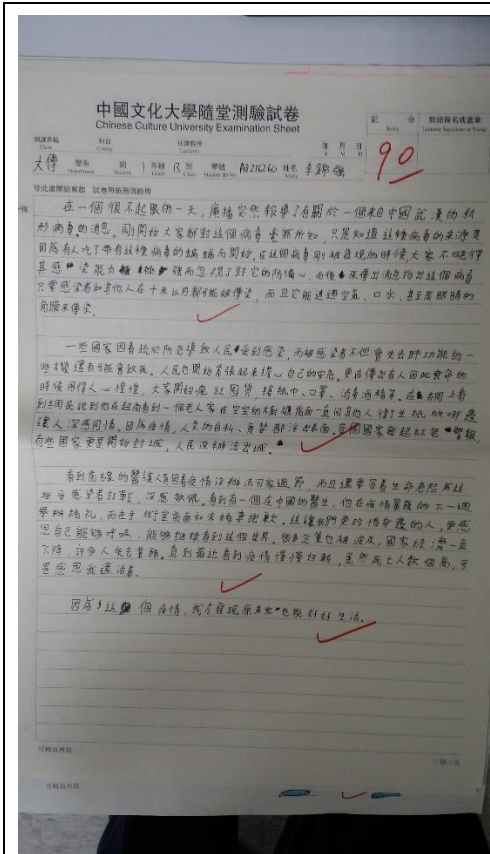 中國文化大學隨堂測驗試卷
Chinese Culture University Examination Sheet
記 分
Score
90
年 月 日
大傳 學系 組 1 年級 B 班 學號 姓名
從此處開始寫起 試卷用紙務須節用
在一個很不起眼的一天,廣播突然報導了有關於一個來自中國武漢的新
形病毒的消息。剛開始大家都對這個病毒毫無所知,只是知道這種病毒的來源是
因為有人吃了帶有這種病毒的蝙蝠而開始。在這個病毒剛被發現的時候大家不曉得
其感染能力 強而忽視了對它的防備心。而後來傳出消息指出這個病毒
只要感染者和其他人在十米以內都可能被傳染,而且它能透過空氣、口水、甚至是眼睛的
角膜來傳染。
一些國家因着疏於防範導致人民受到感染,而被感染者不但會失去肺功能的一
些 還有可能會致死。人民也開始緊張起來擔心自己的安危。更由傳出有人因此喪命的
時候更得人心惶惶,大家開始瘋狂囤貨,搶紙巾、口罩、消毒酒精等。在網上看
到 國民說到他在超商看到一個老人家在空空的 櫃前面一直向其他人討生紙
讓人深感同情。因為疫情,人類的自私、貪婪都浮出表面。各個國家發起紅色警報,
有些國家更是開始封城,人民沒辦法出城。
看到前線的醫護人員因着疫情沒辦法回家過節,而且還要冒着生命危險為這
些受感染者打戰,深感敬佩。看到有一個在中國的醫生,他在疫情 的下一週
舉辦婚禮,而走 前面和未婚妻抱歉。這讓我們更珍惜身邊的人,更感
恩自己能夠呼吸,能夠繼續看到這個世界。很多企業也被波及,國家經濟一直
下降,許多人失去業務。直到最近看到疫情慢慢好轉,雖然死亡人數很高,可
是感恩我還活着。
因為這個疫情,我才發現原來 也能好好生活。
可轉背頁寫
可轉背頁寫